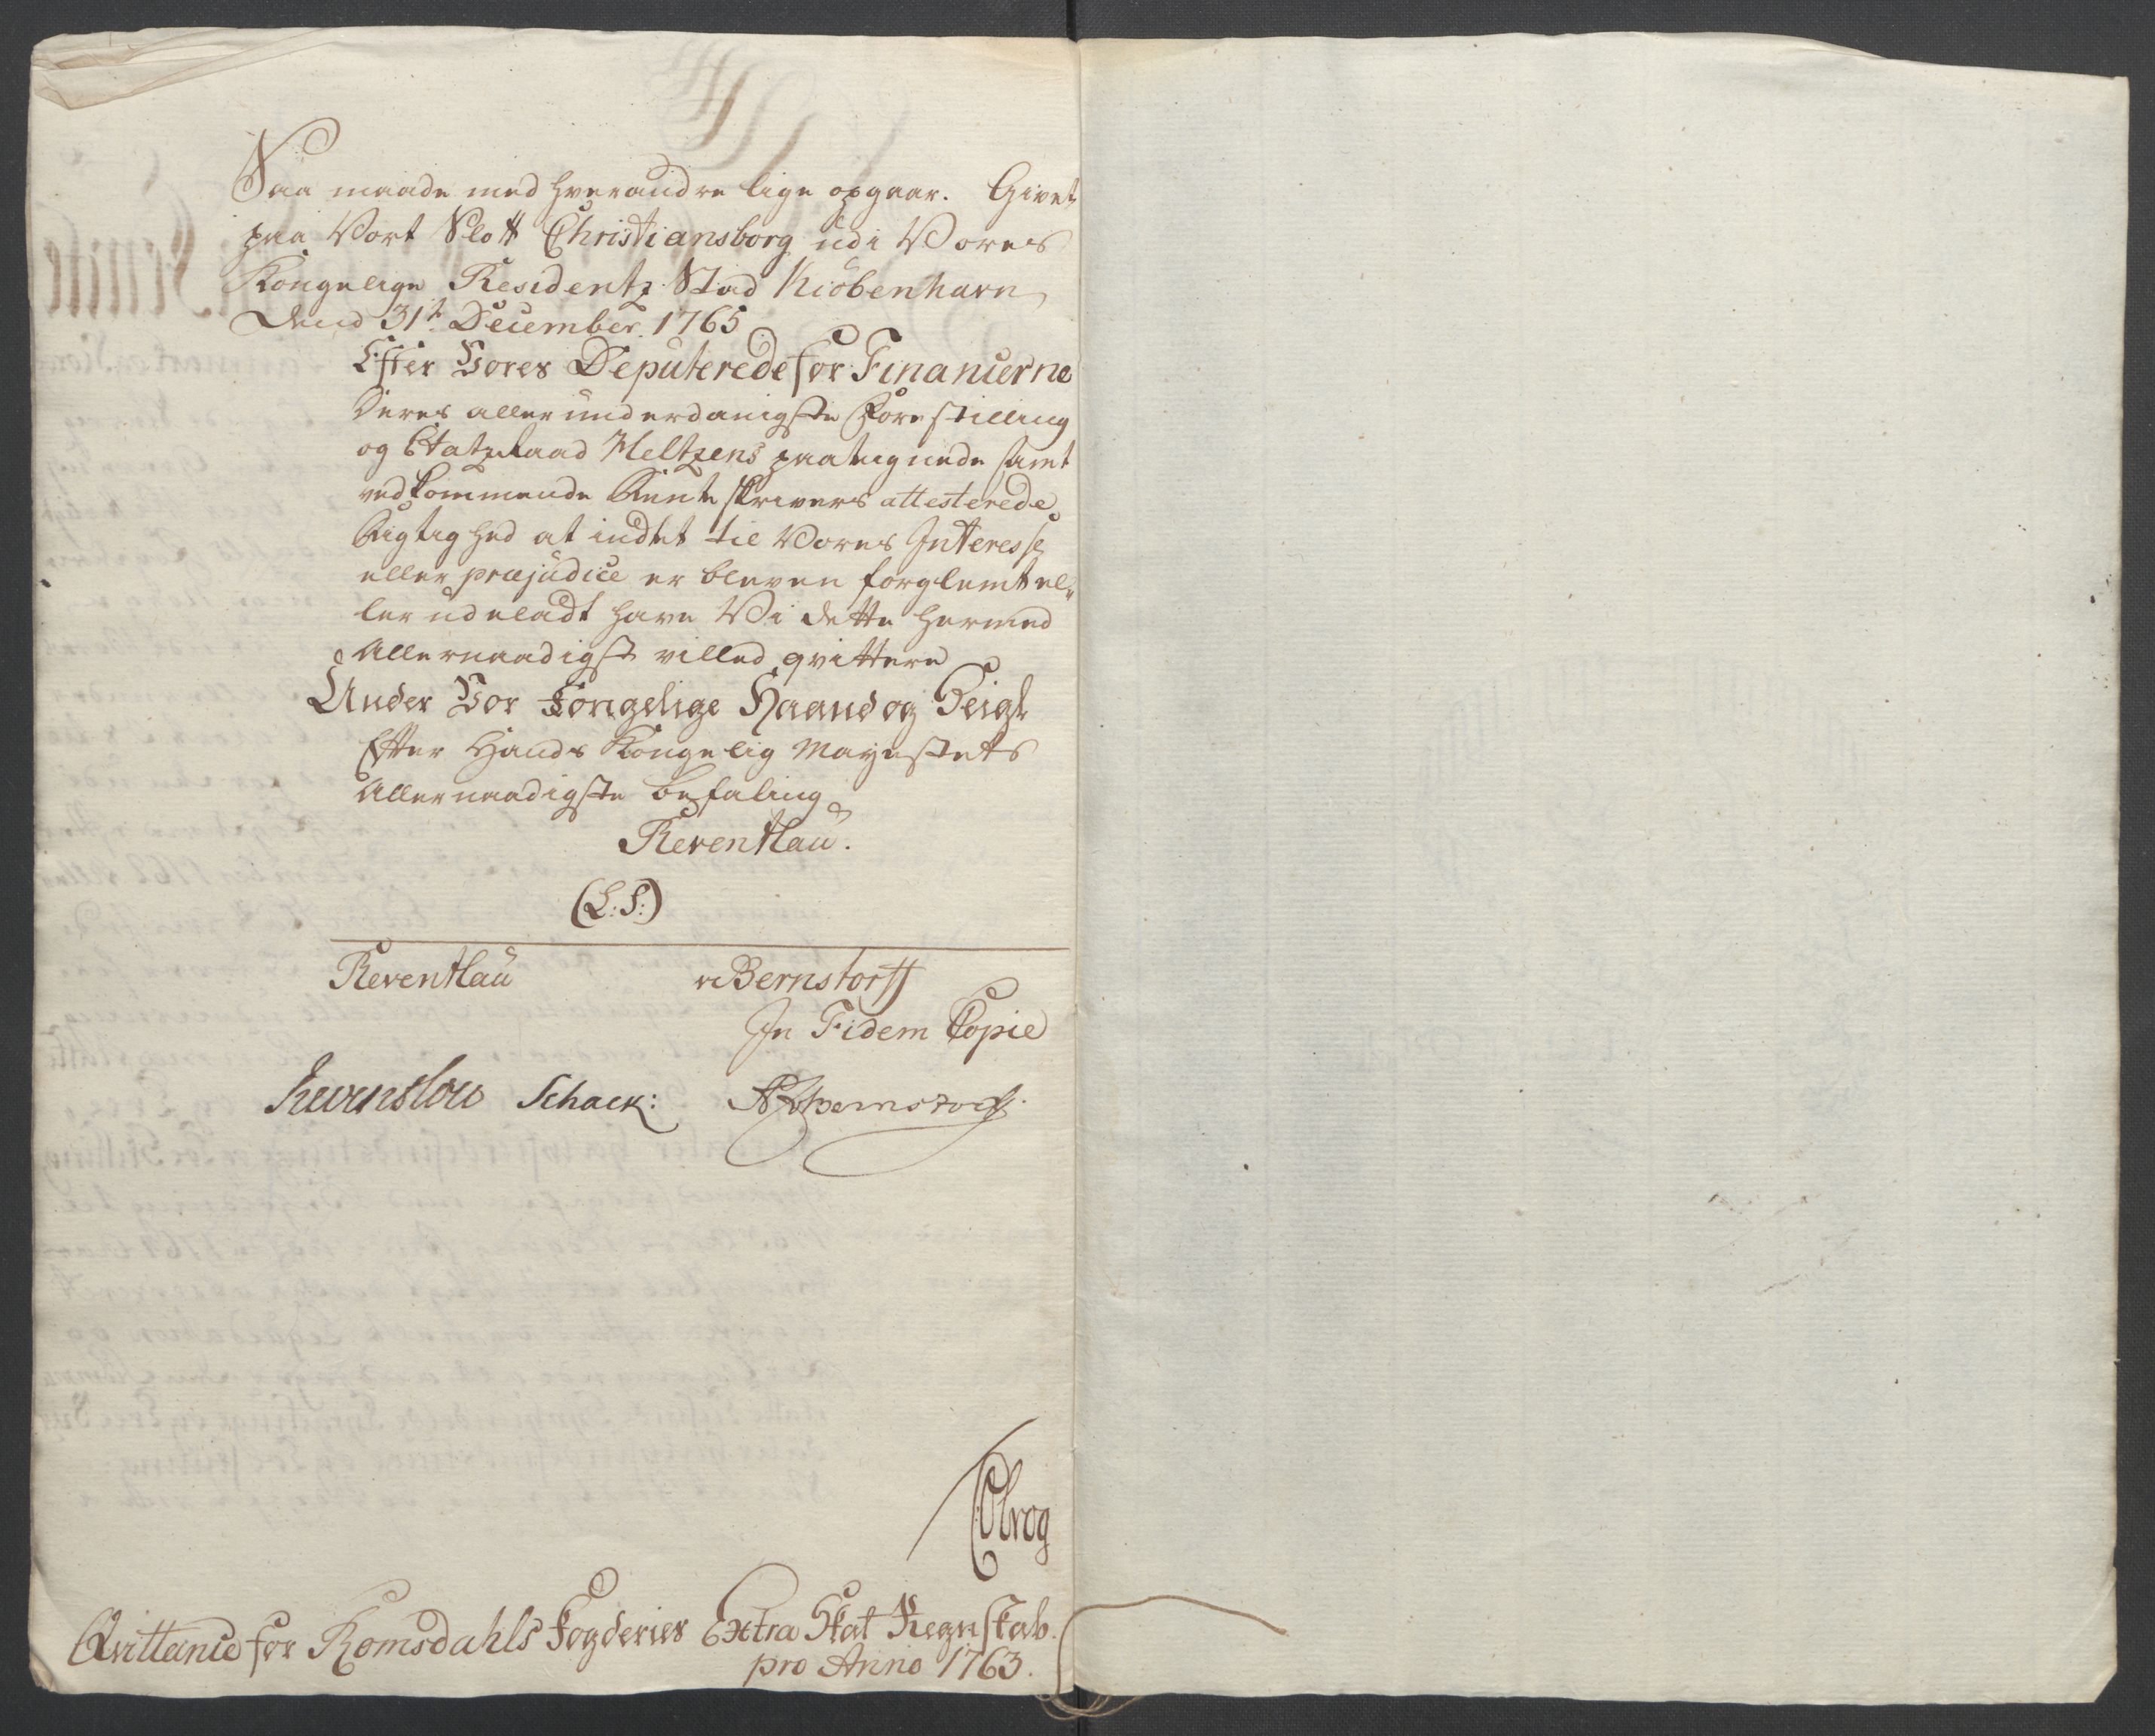 Saa maade med hverandre lige opgaar. Givet
paa Vort Slott Christiansborg udi Vores
Kongelige Residentz Stad Kiöbenhavn
Dend 31te December 1765
Efter Vores Deputerede for Financerne
Deres allerunderdanigste Forestilling
og Etatz Raad Heltzens paategnede samt
vedkommende Renteskrivers attesterede
Rigtighed at indtet til Vores Interesse
eller præjudice er bleven forglemt el-
ler udeladt have Vi dette hermed
Allernaadigst villed qvittere
Under Vor Kongelige Haand og Seigl
Efter Hands Kongelig Mayestets
Allernaadigste Befaling
Reventlau.
(L:S:)
Reventlau v Bernstorff
In Fidem Copie
Reventlou Schack: Bernstorff.
Qvittance for Romsdahls Fogderies Extra Skat Regnskab.
pro Anno 1763.